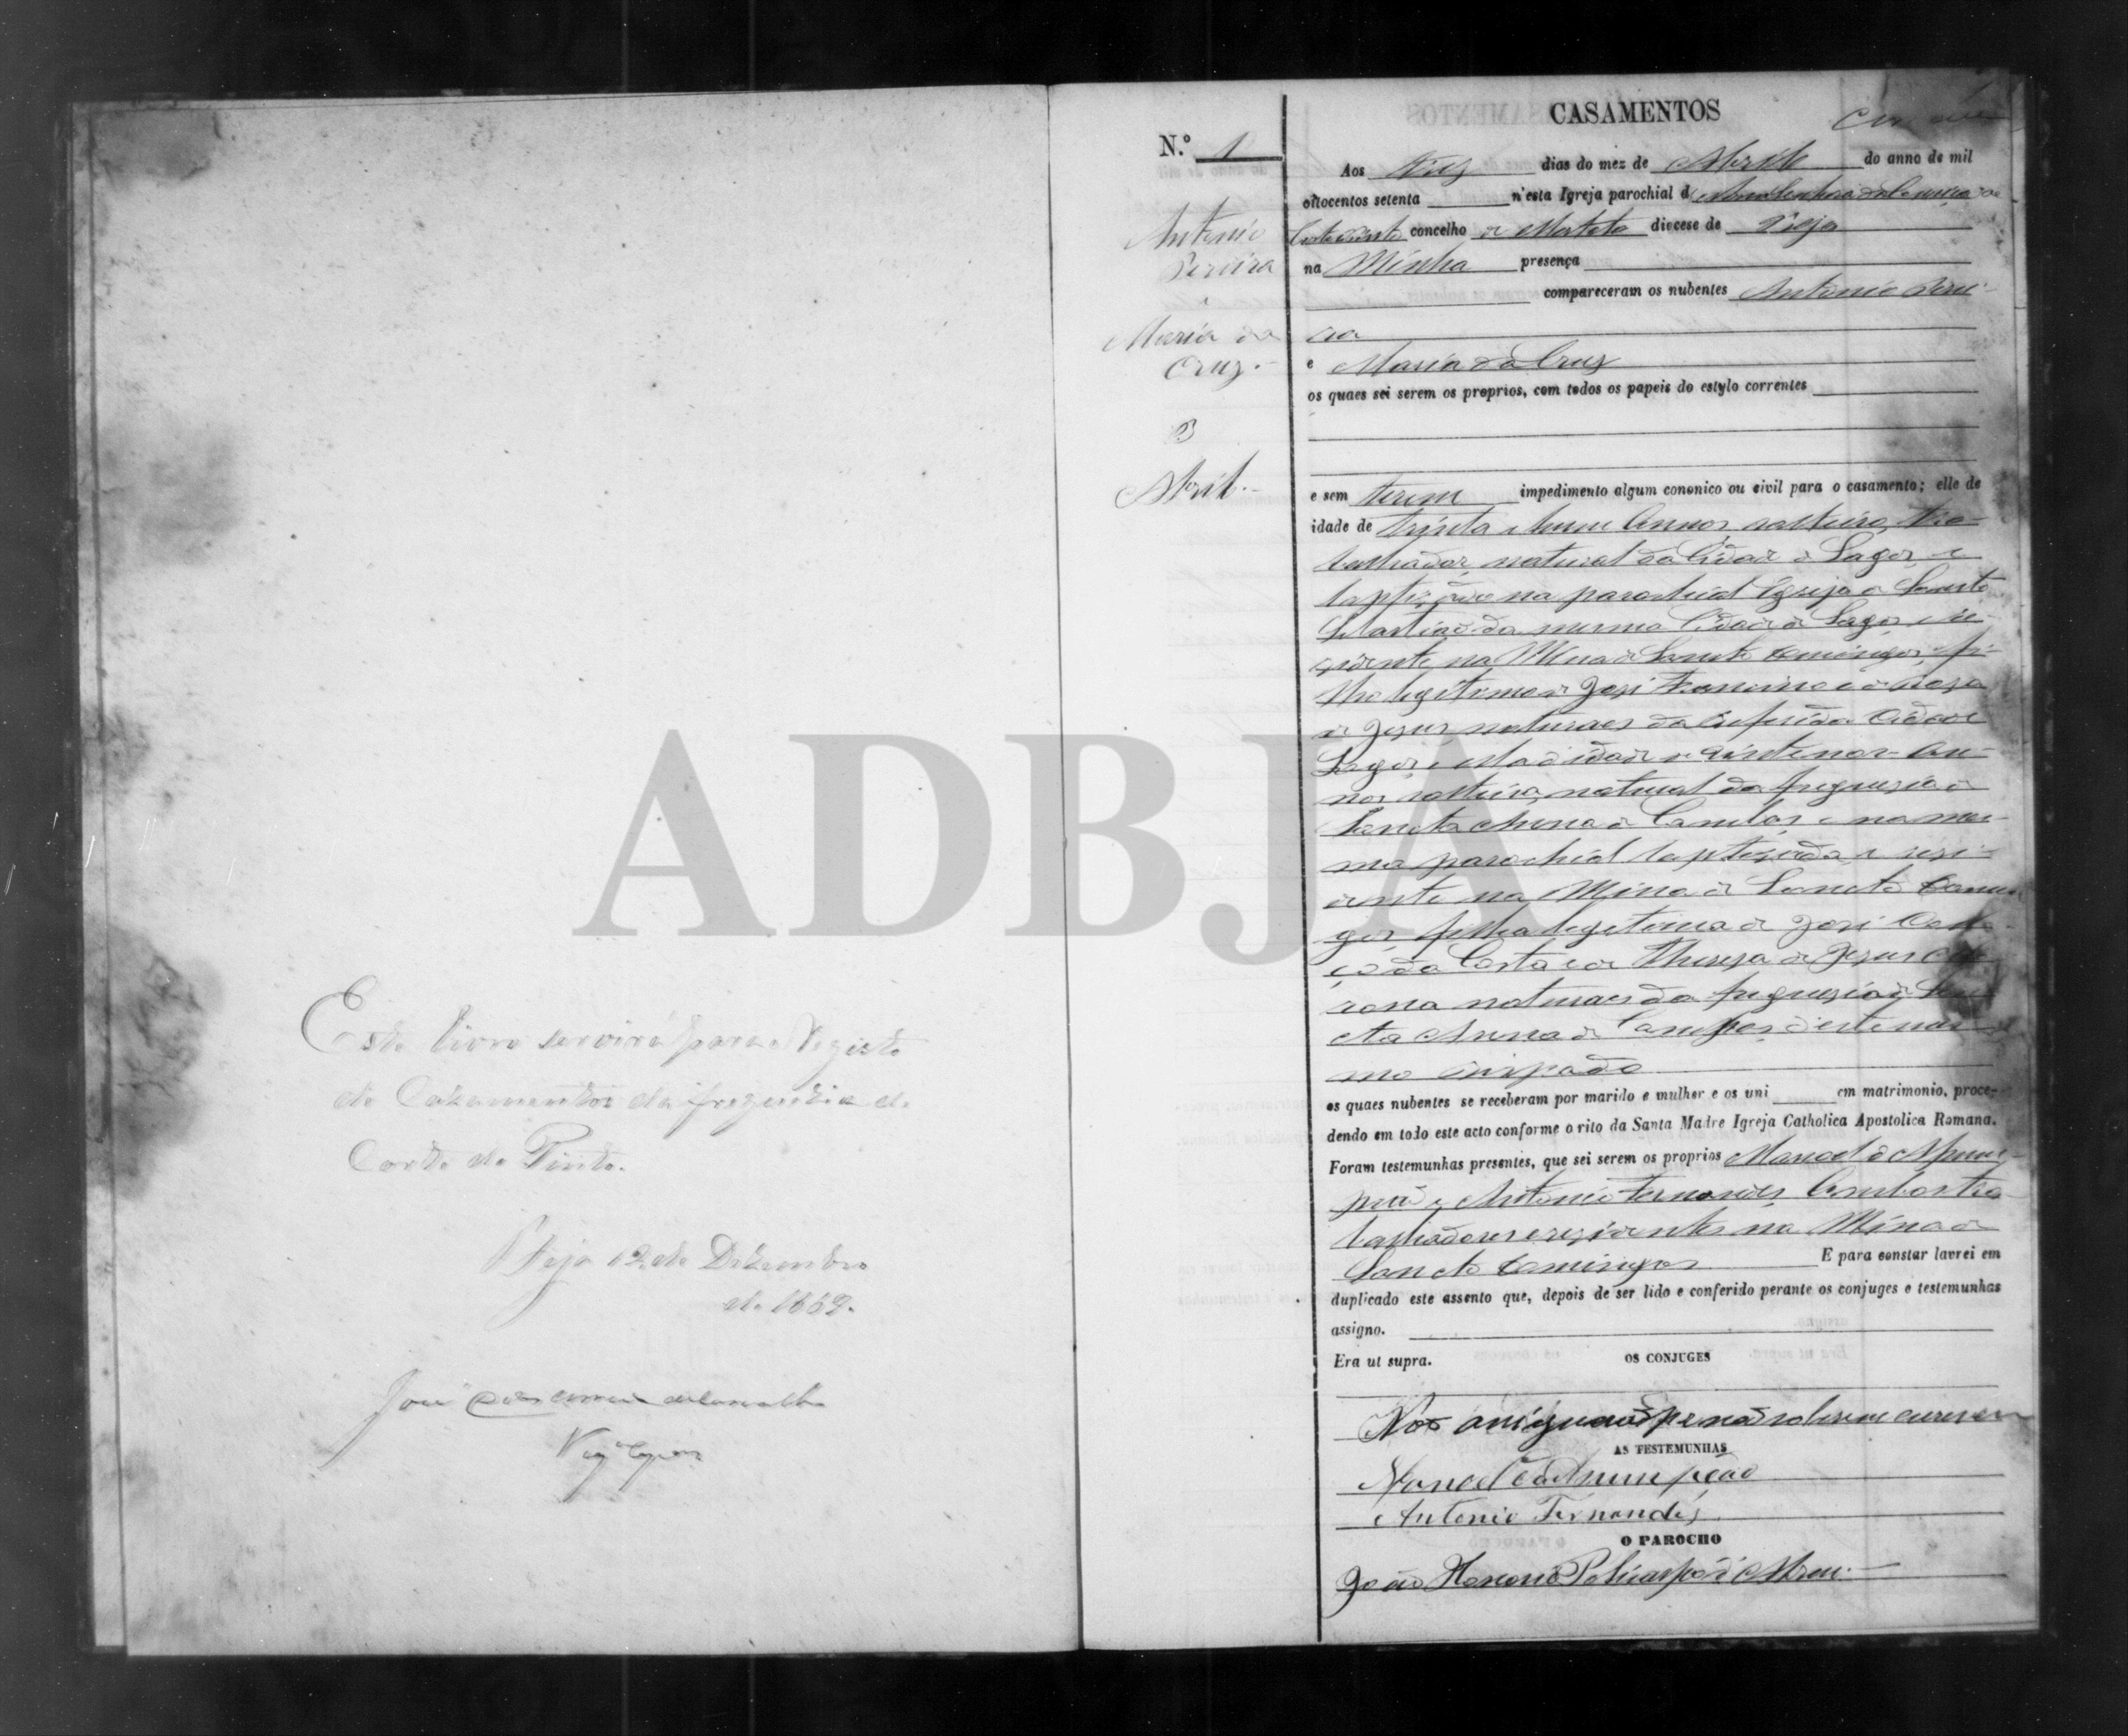 Este livro servirá para o Registo
de Casamentos da freguesia de
Corte do Pinto.
Beja 12 de Dezembro
de 1869.
José
CASAMENTOS
N.º 1
Antonio
Pereira
e
Maria da
Cruz.
3
Abril.
Aos trez dias do mez de Abril do anno de mil
oitocentos setenta n'esta Igreja parochial d
Corte Pinto concelho de Mertola diocese de Beja
na Minha presença
compareceram os nubentes Antonio Perei-
ra
e Maria da Cruz
os quaes sei serem os proprios, com todos os papeis do estylo correntes
e sem terem impedimento algum cononico ou civil para o casamento; elle de
idade de trinta e hum annos solteiro, tra-
balhador, natural da Cidade de Lagos, e
baptizado na parochial Egreja de Sancto
Sebastiaõ da mesma Cidade de Lagos, e re-
zidente na Mina de Sancto Domingos, fi-
lho legitimo de José Francisco e de Roza
de Jezus naturaes da referida Cidade
Lagos, e ella de idade de vinte nove an-
nos solteira, natural da freguezia de
Sancta Anna de Cambas, e na mes-
ma parochial baptizada e rezi-
dente na Mina de Sancto Domin
gos filha legitima de José
da Costa e de Thereza de Jezus
naturaes da freguezia de San
cta Anna de Cambas d'este mes
mo Bispado
os quaes nubentes se receberam por marido e mulher e os uni em matrimonio, proce-
dendo em todo este acto conforme o rito da Santa Madre Igreja Catholica Apostolica Romana.
Foram testemunhas presentes, que sei serem os proprios Manoel d'Assum-
pçaõ e Antonio Fernandes, ambos tra-
balhadores e rezidentes na Mina de
Sancto Domingos E para constar lavrei em
duplicado este assento que, depois de ser lido e conferido perante os conjuges e testemunhas
assigno.
Era ut supra.
OS CONJUGES
Naõ assignaraõ por naõ saberem escrever
AS TESTEMUNHAS
Manoel d'Assumpçaõ
Antonio Fernandes
O PAROCHO
João Honorio Policarpo d'Abreu.
ADBJA